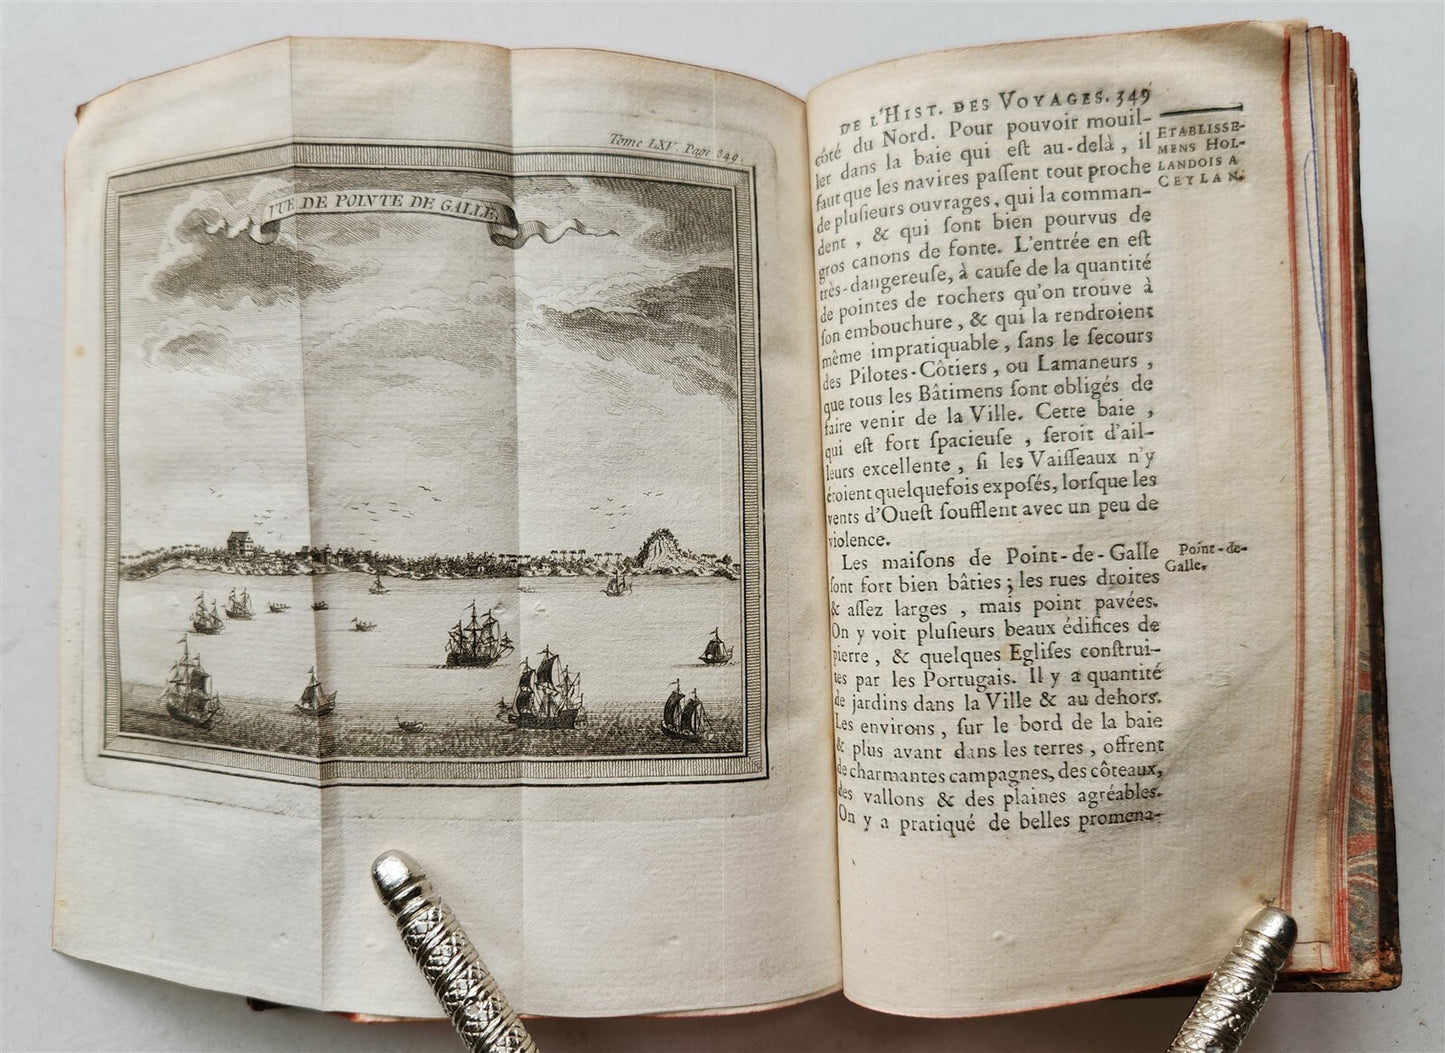 Tome LXV. Page 349.
VUE DE POINTE DE GALLE.
DE L'HIST. DES VOYAGES. 349
ETABLISSE-
MENS HOL-
LANDOIS A
CEYLAN.
côté du Nord. Pour pouvoir mouil-
ler dans la baie qui eſt au-delà, il
faut que les navires paſſent tout proche
de pluſieurs ouvrages, qui la comman-
dent, & qui ſont bien pourvus de
gros canons de fonte. L'entrée en eſt
très-dangereuſe, à cauſe de la quantité
de pointes de rochers qu'on trouve à
ſon embouchure, & qui la rendroient
même impratiquable, ſans le ſecours
des Pilotes-Côtiers, ou Lamaneurs,
que tous les Bâtimens ſont obligés de
faire venir de la Ville. Cette baie,
qui eſt fort ſpacieuſe, ſeroit d'ail-
leurs excellente, ſi les Vaiſſeaux n'y
étoient quelquefois expoſés, lorſque les
vents d'Oueſt ſoufflent avec un peu de
violence.
Les maiſons de Point-de-Galle
Point-de-
Galle.
ſont fort bien bâties; les rues droites
& aſſez larges, mais point pavées.
On y voit pluſieurs beaux édifices de
pierre, & quelques Egliſes conſtrui-
tes par les Portugais. Il y a quantité
de jardins dans la Ville & au dehors.
Les environs, ſur le bord de la baie
& plus avant dans les terres, offrent
de charmantes campagnes, des côteaux,
des vallons & des plaines agréables.
On y a pratiqué de belles promena-